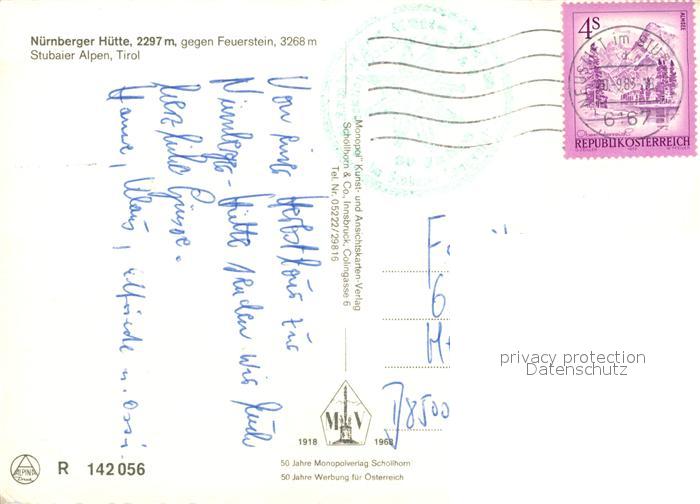 Nürnberger Hütte, 2297 m, gegen Feuerstein, 3268 m
Stubaier Alpen, Tirol
Von einer Herbsttour zur
Nürnberger-Hütte senden wir Euch
herzliche Grüsse.
Hanne, Klaus, Elfriede u. Ossi
„Monopol" Kunst- und Ansichtskarten-Verlag
Schöllhorn & Co., Innsbruck, Colingasse 6
Tel. Nr. 05222/29816
4S
ALMSEE
REPUBLIK ÖSTERREICH
6167
F
6
H
D 8500
privacy protection
Datenschutz
M V
1918 1968
50 Jahre Monopolverlag Schöllhorn
50 Jahre Werbung für Österreich
ALPINA
Druck
R 142 056